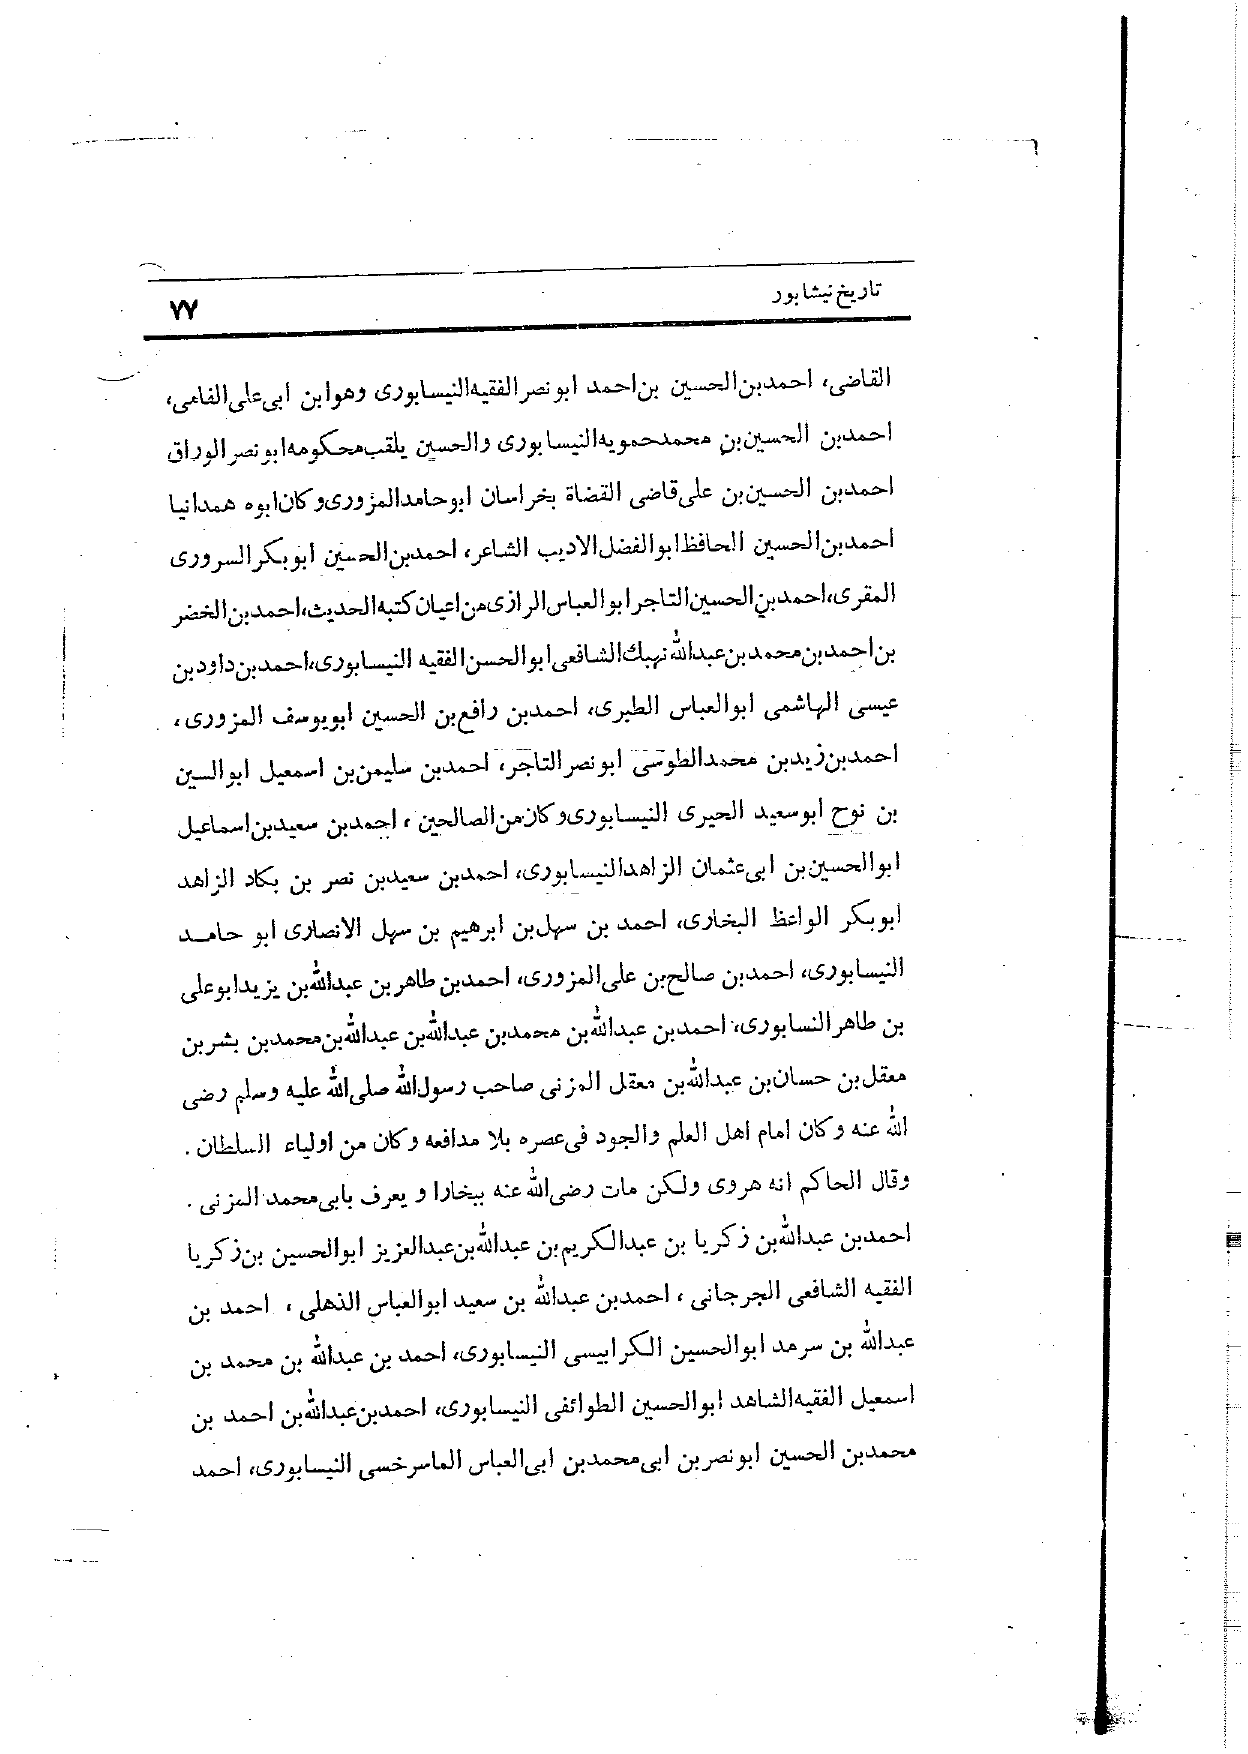 تاریخ نیشابور
۷۷
القاضی، احمدبن‌الحسین بن‌احمد ابونصر الفقیه‌النیسابوری وهوابن ابی‌علی‌الفامی،
احمدبن الحسین‌بن محمدحمویه‌النیسابوری والحسین یلقب‌محکومه‌ابونصر الوراق
احمدبن الحسین‌بن علی‌قاضی القضاة بخراسان ابوحامدالمزوری‌وکان‌ابوه همدانیا
احمدبن‌الحسین الحافظ‌ابوالفضل‌الادیب الشاعر، احمدبن‌الحسین ابوبکر السروری
المقری،احمدبن‌الحسین‌التاجر ابوالعباس‌الرازی‌من‌اعیان‌کتبه‌الحدیث،احمدبن‌الخضر
بن‌احمدبن‌محمدبن‌عبدالله‌نهیك‌الشافعی‌ابوالحسن‌الفقیه النیسابوری،احمدبن‌داودبن
عیسی الهاشمی ابوالعباس الطبری، احمدبن رافع‌بن الحسین ابویوسف المزوری،
احمدبن‌زیدبن محمدالطوسی ابونصر التاجر، احمدبن سلیمن‌بن اسمعیل ابوالسین
بن نوح ابوسعید الحیری النیسابوری‌وکان‌من‌الصالحین ، احمدبن سعیدبن‌اسماعیل
ابوالحسین‌بن ابی‌عثمان الزاهدالنیسابوری، احمدبن سعیدبن نصر بن بکاد الزاهد
ابوبکر الواعظ البخاری، احمد بن سهل‌بن ابرهیم بن سهل الانصاری ابو حامد
النیسابوری، احمدبن صالح‌بن علی‌المزوری، احمدبن طاهربن عبدالله‌بن یزیدابوعلی
بن طاهر النسابوری، احمدبن عبدالله‌بن محمدبن عبدالله‌بن عبدالله‌بن‌محمدبن بشربن
معقل‌بن حسان‌بن عبدالله‌بن معقل المزنی صاحب رسول‌الله صلی‌الله علیه وسلم رضی
الله عنه وکان امام اهل العلم والجود فی‌عصره بلا مدافعه وکان من اولیاء السلطان .
وقال الحاکم انه هروی ولکن مات رضی‌الله عنه ببخارا و یعرف بابی‌محمد المزنی .
احمدبن عبدالله‌بن زکریا بن عبدالکریم‌بن عبدالله‌بن‌عبدالعزیز ابوالحسین بن‌زکریا
الفقیه الشافعی الجرجانی ، احمدبن عبدالله بن سعید ابوالعباس الذهلی ، احمد بن
عبدالله بن سرمد ابوالحسین الکرابیسی النیسابوری، احمد بن عبدالله بن محمد بن
اسمعیل الفقیه‌الشاهد ابوالحسین الطوائفی النیسابوری، احمدبن‌عبدالله‌بن احمد بن
محمدبن الحسین ابونصربن ابی‌محمدبن ابی‌العباس الماسرخسی النیسابوری، احمد